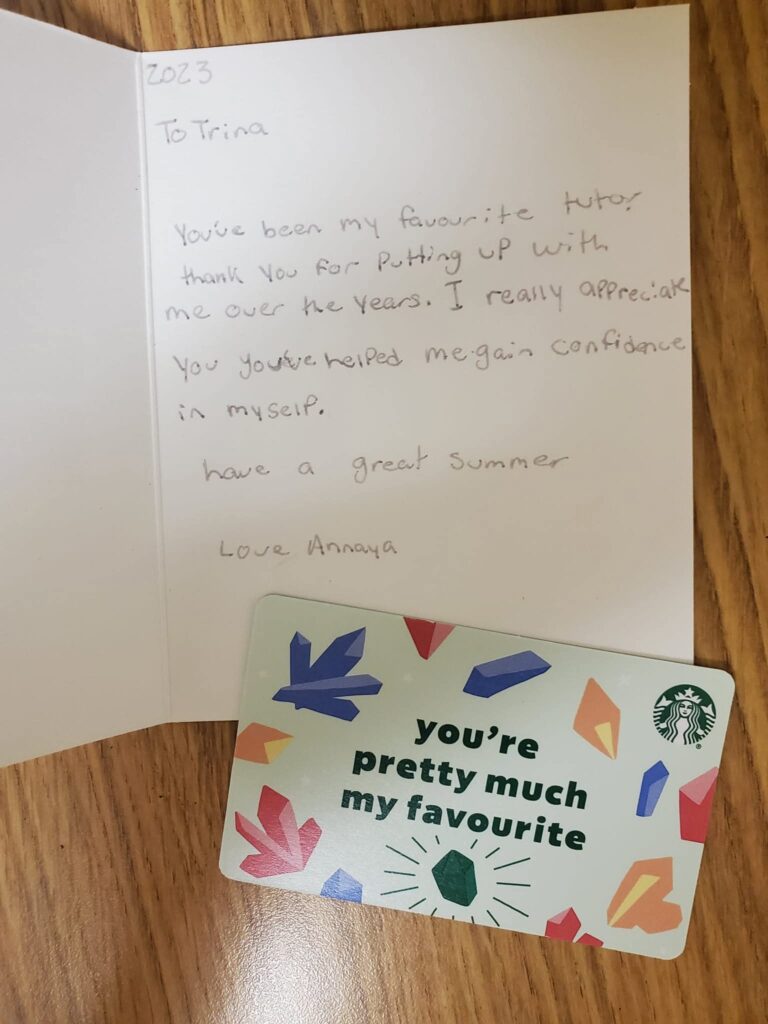 2023
To Trina
You've been my favourite tutor
thank you for putting up with
me over the years. I really appreciate
you you've helped me gain confidence
in myself.
have a great summer
Love Annaya
you're
pretty much
my favourite